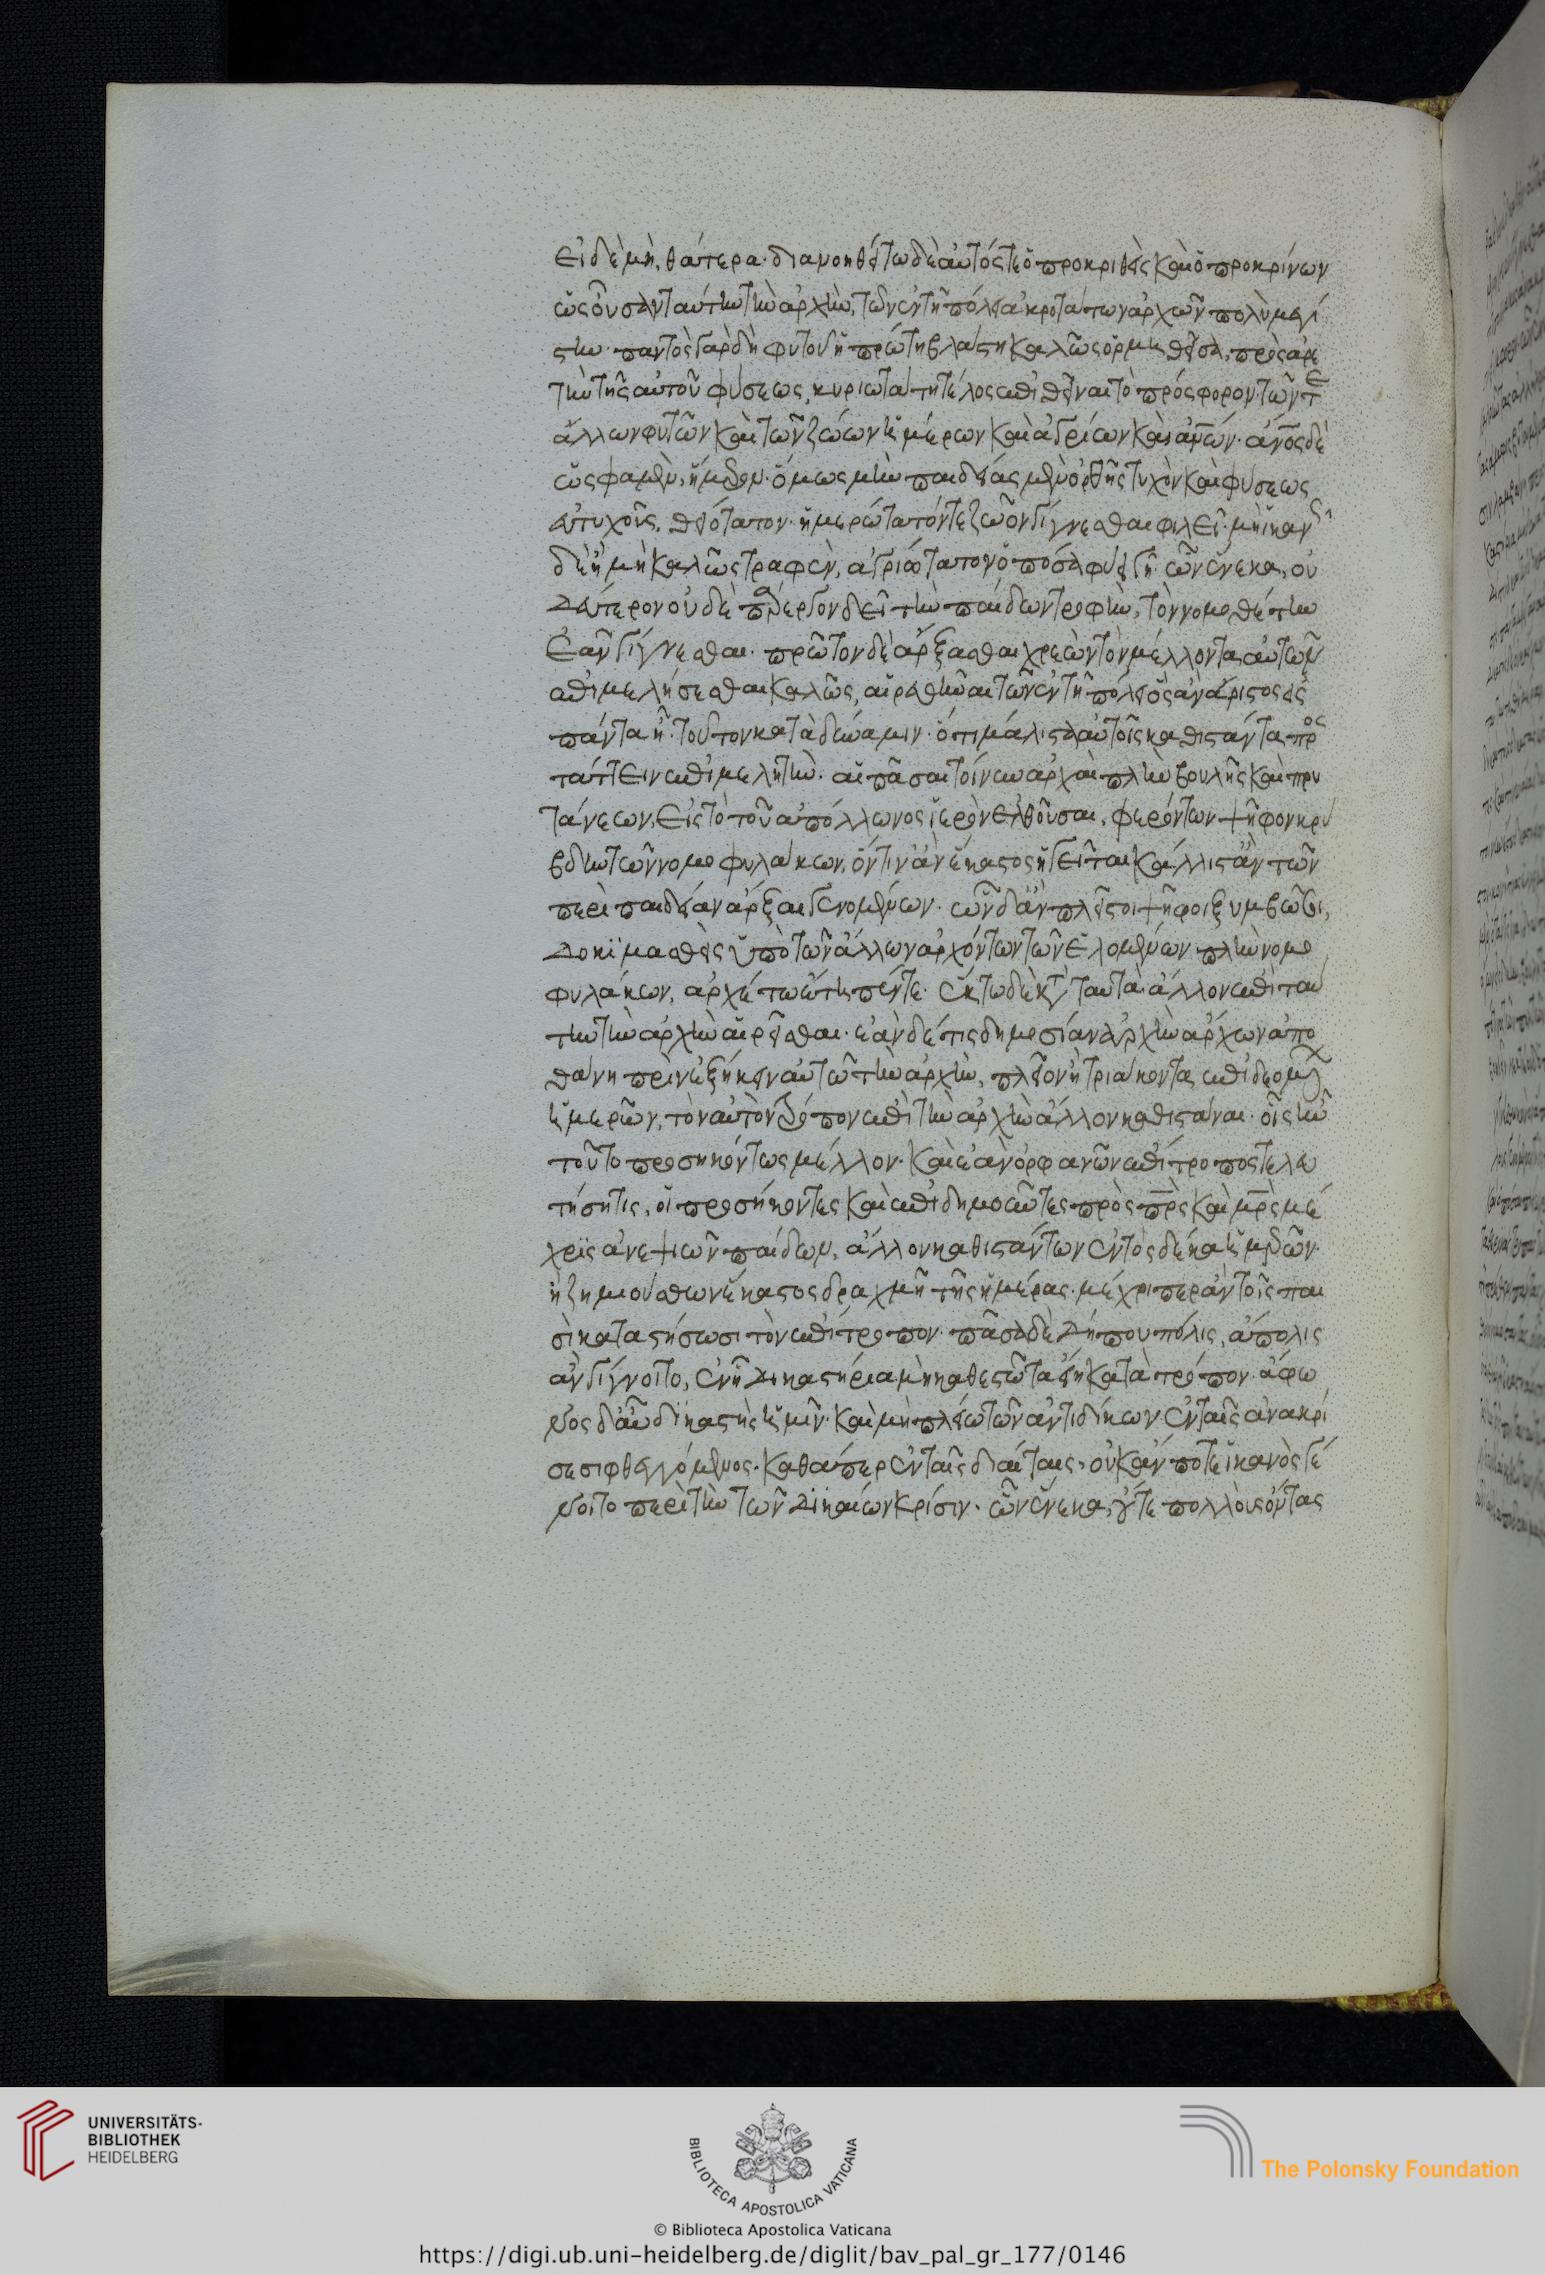 εἰ δὲ μὴ, θάτερα· διανοηθήτω δὲ αὐτός τε ὁ προκριθεὶς καὶ ὁ προκρίνων
ὡς οὖσαν ταύτην τὴν ἀρχὴν, τῶν ἐν τῆ πόλει ἀκροτάτων ἀρχῶν πολὺ μεγί
στην· παντὸς γὰρ δὴ φυτοῦ ἡ πρώτη βλάστη καλῶς ὁρμηθεῖσα, πρὸς ἀρε
τὴν τῆς αὐτοῦ φύσεως, κυριωτάτη τέλος ἐπιθεῖναι τὸ πρόσφορον· τῶν τε
ἄλλων φυτῶν καὶ τῶν ζώων ἡμέρων καὶ ἀγρίων καὶ ἀνων· ἀνος δὲ
ὥς φαμεν, ἥμερον· ὅμως μὴν παιδείας μὲν ὀρθῆς τυχὸν καὶ φύσεως
εὐτυχοῦς, θειότατον· ἡμερώτατόν τε ζῶον γίγνεσθαι φιλεῖ· μὴ ἱκανῶς
δὲ ἢ μὴ καλῶς τραφὲν, ἀγριώτατον ὁπόσα φύει γῆ· ὧν ἕνεκα, οὐ
δεύτερον οὐδὲ πάρεργον δεῖ τὴν παίδων τροφὴν, τὸν νομοθέτην
ἐᾶν γίγνεσθαι· πρῶτον δὲ ἄρξασθαι χρεὼν τὸν μέλλοντα αὐτῶν
ἐπιμελήσεσθαι καλῶς, αἱρεθῆναι τῶν ἐν τῆ πόλει ὃς ἂν ἄριστος εἰς
πάντα ἦ· τοῦτον κατὰ δύναμιν· ὅτι μάλιστα αὐτοῖς καθιστάντα προς
τάττειν ἐπιμελητὴν· αἱ πᾶσαι τοίνυν ἀρχαὶ πλὴν βουλῆς καὶ πρυ
τάνεων, εἰς τὸ τοῦ ἀπόλλωνος ἱερὸν ἐλθοῦσαι, φερόντων ψῆφον κρύ
βδην τῶν νομοφυλάκων, ὅντιν ἂν ἕκαστος ἡγεῖται κάλλιστ ἂν τῶν
περὶ παιδείαν ἄρξαι γενομένων· ὧν δ ἂν πλεῖστοι ψῆφοι ξυμβῶσι,
δοκιμασθεὶς ὑπὸ τῶν ἄλλων ἀρχόντων τῶν ἑλομένων πλὴν νομο
φυλάκων, ἀρχέτω ἔτη πέντε· ἕκτω δὲ κατὰ ταὐτὰ ἄλλον ἐπὶ ταύ
την τὴν ἀρχὴν αἱρεῖσθαι· ἐὰν δέ τις δημοσίαν ἀρχὴν ἄρχων ἀπο
θάνη πρὶν ἐξήκειν αὐτῶ τὴν ἀρχὴν, πλεῖον ἢ τριάκοντα ἐπιδεομένων
ἡμερῶν, τὸν αὐτὸν τρόπον ἐπὶ τὴν ἀρχὴν ἄλλον καθιστάναι· οἷς ἦν
τοῦτο προσηκόντως μέλλον· καὶ ἐὰν ὀρφανῶν ἐπίτροπος τελευ
τήση τις, οἱ προσήκοντες καὶ ἐπιδημοῦντες πρὸς πρς καὶ μρς μέ
χρις ἀνεψιῶν παίδων, ἄλλον καθιστάντων ἐντὸς δέκα ἡμερῶν·
ἢ ζημιούσθων ἕκαστος δραχμῆ τῆς ἡμέρας· μέχρι περ ἂν τοῖς παι
σὶ καταστήσωσι τὸν ἐπίτροπον· πᾶσα δὲ δήπου πόλις, ἄπολις
ἂν γίγνοιτο, ἐν ἧ δικαστήρια μὴ καθεστῶτα εἴη κατὰ τρόπον· ἄφω
νος δ αὖ δικαστὴς ἡμῖν· καὶ μὴ πλείω τῶν ἀντιδίκων ἐν ταῖς ἀνακρί
σεσι φθεγγόμενος· καθάπερ ἐν ταῖς διαίταις, οὐκ ἄν ποτε ἱκανὸς γέ
νοιτο περὶ τὴν τῶν δικαίων κρίσιν· ὧν ἕνεκα, οὔτε πολλοὺς ὄντας
UNIVERSITÄTS-
BIBLIOTHEK
HEIDELBERG
BIBLIOTECA APOSTOLICA VATICANA
The Polonsky Foundation
© Biblioteca Apostolica Vaticana
https://digi.ub.uni-heidelberg.de/diglit/bav_pal_gr_177/0146